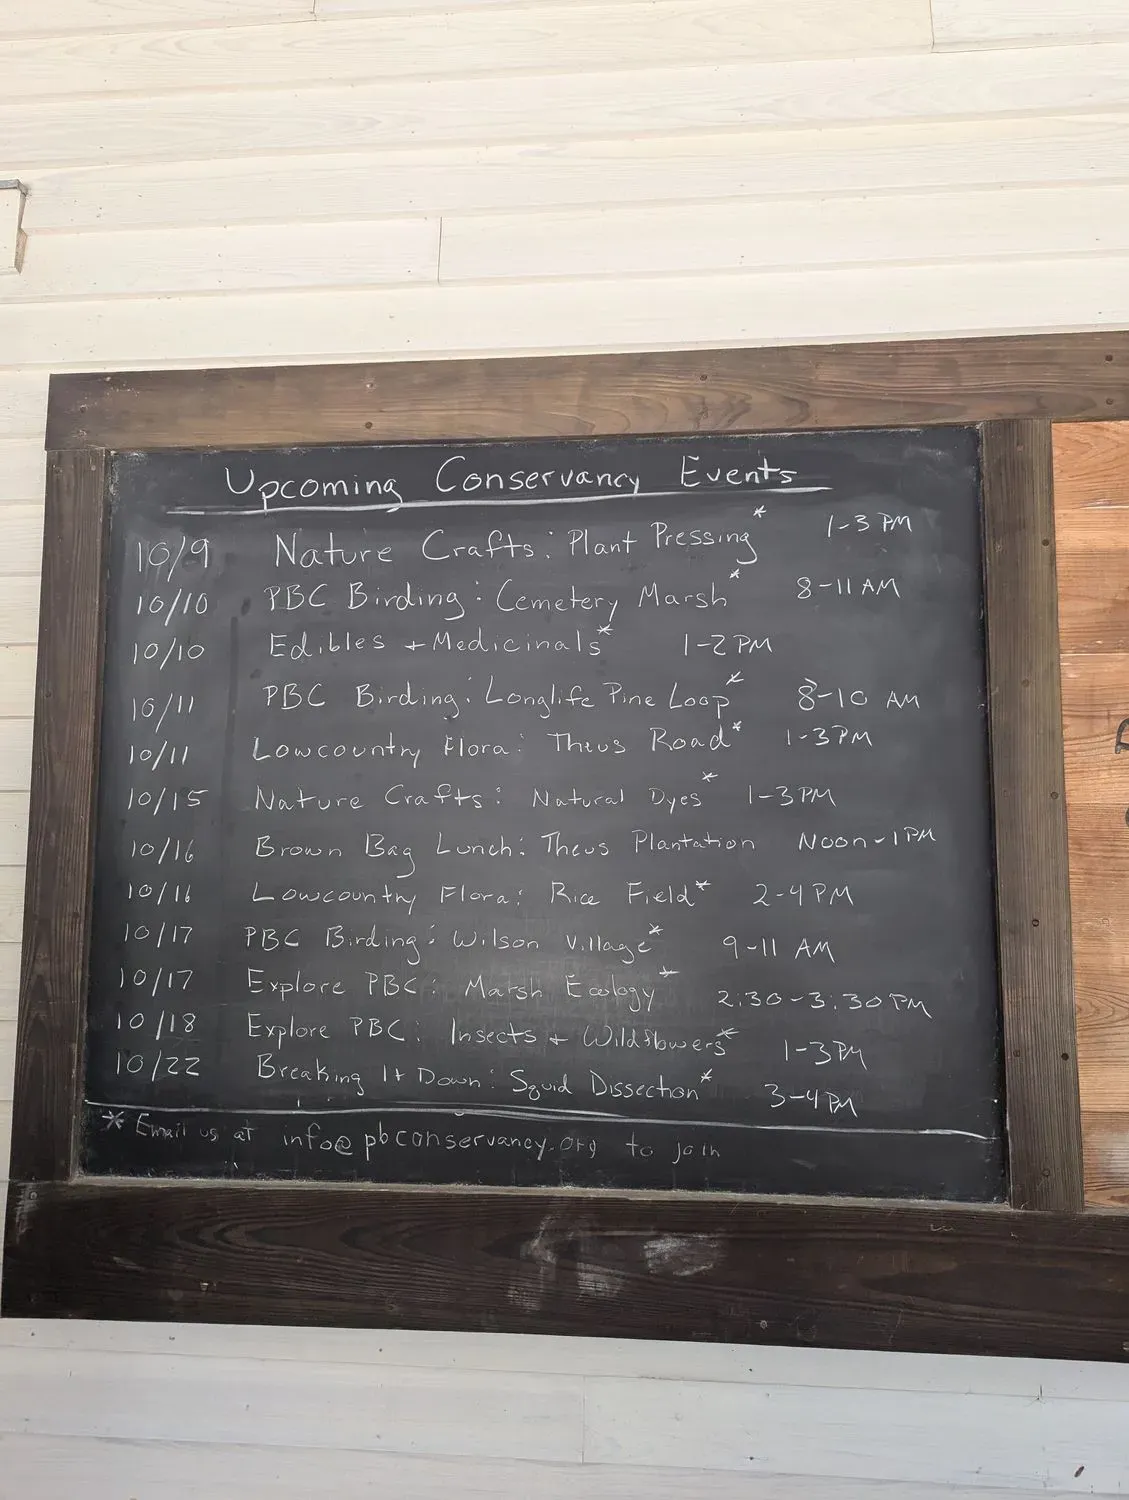 Upcoming Conservancy Events
10/9 Nature Crafts: Plant Pressing* 1-3 PM
10/10 PBC Birding: Cemetery Marsh* 8-11 AM
10/10 Edibles + Medicinals* 1-2 PM
10/11 PBC Birding: Longlife Pine Loop* 8-10 AM
10/11 Lowcountry Flora: Theus Road* 1-3 PM
10/15 Nature Crafts: Natural Dyes* 1-3 PM
10/16 Brown Bag Lunch: Theus Plantation Noon-1 PM
10/16 Lowcountry Flora: Rice Field* 2-4 PM
10/17 PBC Birding: Wilson Village* 9-11 AM
10/17 Explore PBC: Marsh Ecology* 2:30-3:30 PM
10/18 Explore PBC: Insects + Wildflowers* 1-3 PM
10/22 Breaking It Down: Squid Dissection* 3-4 PM
* Email us at info@pbconservancy.org to join